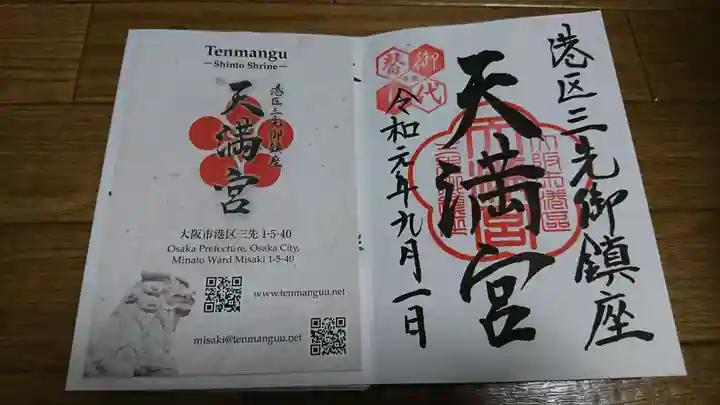 Tenmangu
—Shinto Shrine—
港区三先御鎮座
天満宮
大阪市港区三先 1-5-40
Osaka Prefecture, Osaka City,
Minato Ward Misaki 1-5-40
www.tenmanguu.net
misaki@tenmanguu.net
港区三先御鎮座
天満宮
御代替
令和元年九月一日